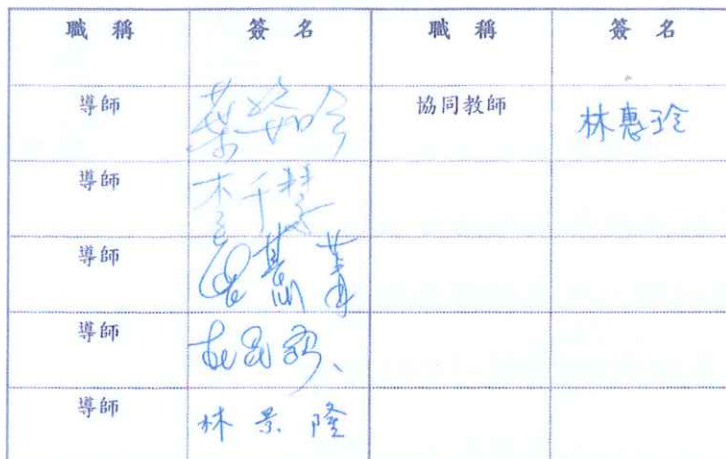 職稱 簽名 職稱 簽名
導師 葉姿吟 協同教師 林惠玲
導師 李千慧
導師
導師
導師 林景隆